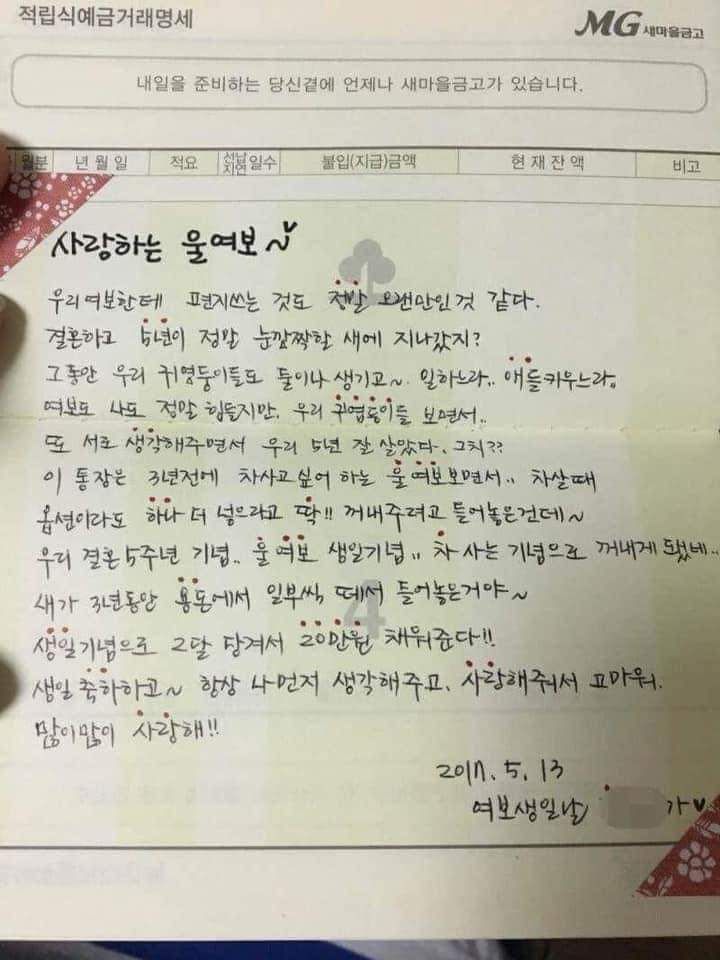 적립식예금거래명세
MG 새마을금고
내일을 준비하는 당신곁에 언제나 새마을금고가 있습니다.
월분 년월일 적요 선납 지연 일수 불입(지급)금액 현재잔액 비고
사랑하는 울여보~♥
우리여보한테 편지쓰는 것도 정말 오랜만인것 같다.
결혼하고 5년이 정말 눈깜짝할 새에 지나갔지?
그동안 우리 귀염둥이들도 둘이나 생기고~ 일하느라.. 애들키우느라,
여보도 나도 정말 힘들지만, 우리 귀염둥이들 보면서..
또 서로 생각해주면서 우리 5년 잘 살았다. 그치??
이 통장은 3년전에 차사고싶어 하는 울여보보면서.. 차살때
옵션이라도 하나 더 넣으라고 딱!! 꺼내주려고 들어놓은건데~
우리 결혼 5주년 기념.. 울여보 생일기념.. 차 사는 기념으로 꺼내게 됐네..
내가 3년동안 용돈에서 일부씩 떼서 들어놓은거야~
생일기념으로 2달 당겨서 20만원 채워준다!!
생일 축하하고~ 항상 나먼저 생각해주고, 사랑해줘서 고마워.
많이많이 사랑해!!
2017. 5. 13
여보생일날 가♥